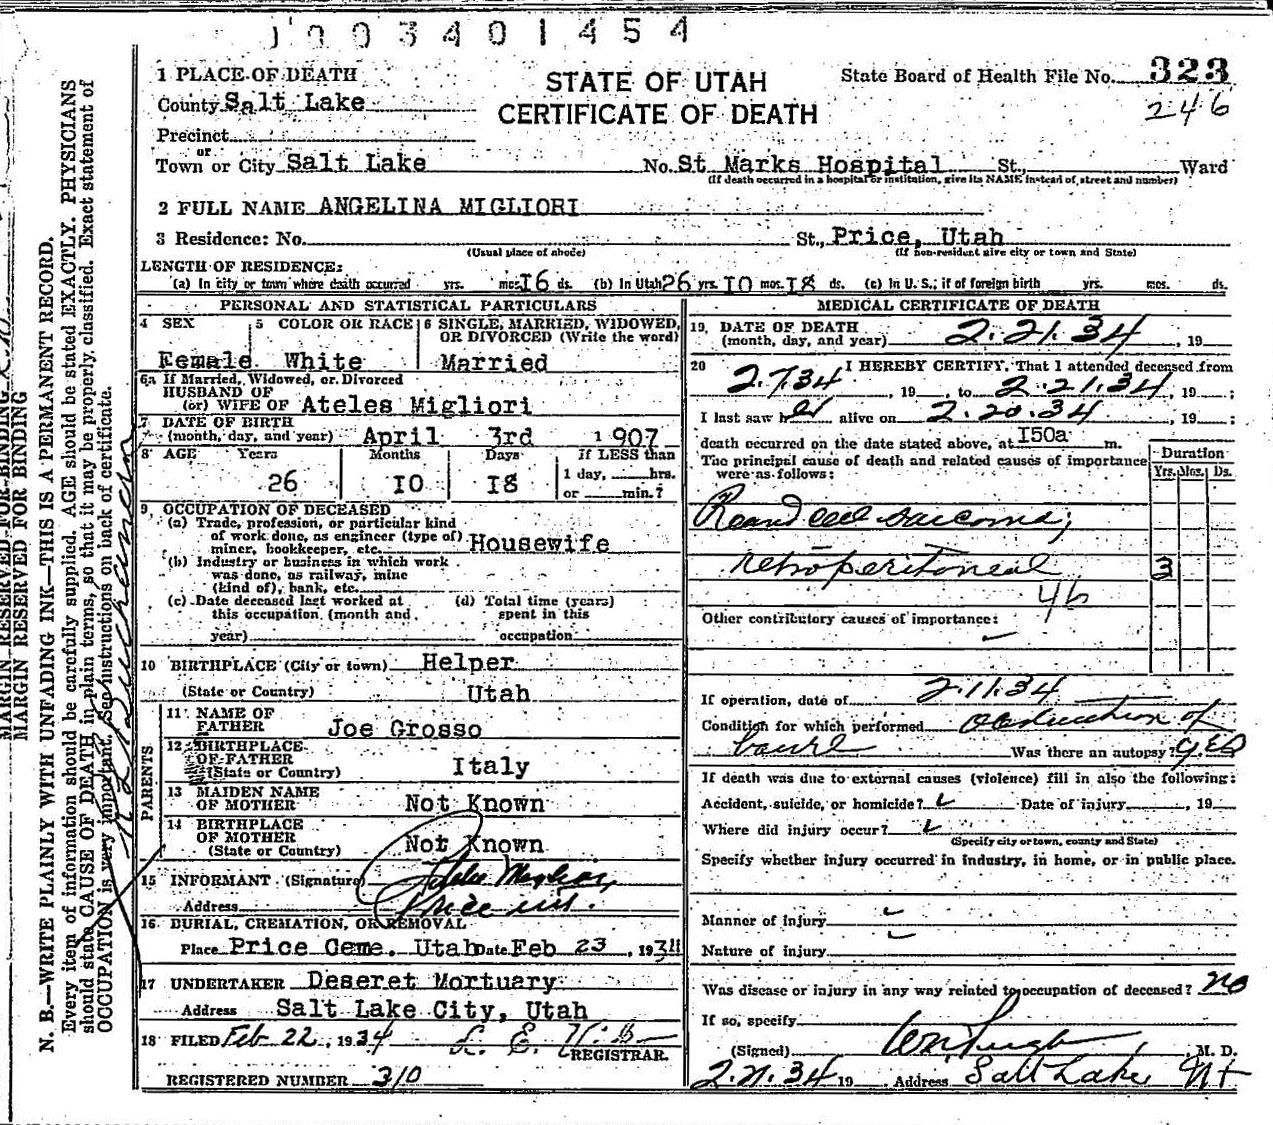 1003401454
STATE OF UTAH
CERTIFICATE OF DEATH
State Board of Health File No. 323
246
1 PLACE OF DEATH
County Salt Lake
Precinct
or
Town or City Salt Lake No. St Marks Hospital St., Ward
(If death occurred in a hospital or institution, give its NAME instead of street and number)
2 FULL NAME ANGELINA MIGLIORI
3 Residence: No. St., Price, Utah
(Usual place of abode) (If non-resident give city or town and State)
LENGTH OF RESIDENCE:
(a) In city or town where death occurred yrs. mos. 16 ds. (b) In Utah 26 yrs. 10 mos. 18 ds. (c) In U. S., if of foreign birth yrs. mos. ds.
PERSONAL AND STATISTICAL PARTICULARS
4 SEX 5 COLOR OR RACE 6 SINGLE, MARRIED, WIDOWED, OR DIVORCED (Write the word)
Female White Married
6a If Married, Widowed, or Divorced
HUSBAND OF
(or) WIFE OF Ateles Migliori
7 DATE OF BIRTH
(month, day, and year) April 3rd 1907
8 AGE Years Months Days If LESS than
26 10 18 1 day, hrs.
or min.?
9 OCCUPATION OF DECEASED
(a) Trade, profession, or particular kind
of work done, as engineer (type of)
miner, bookkeeper, etc. Housewife
(b) Industry or business in which work
was done, as railway, mine
(kind of), bank, etc.
(c) Date deceased last worked at (d) Total time (years)
this occupation (month and spent in this
year) occupation
10 BIRTHPLACE (City or town) Helper
(State or Country) Utah
PARENTS
11 NAME OF
FATHER Joe Grosso
12 BIRTHPLACE
OF FATHER
(State or Country) Italy
13 MAIDEN NAME
OF MOTHER Not Known
14 BIRTHPLACE
OF MOTHER Not Known
(State or Country)
15 INFORMANT (Signature)
Address Price Ut.
16 BURIAL, CREMATION, OR REMOVAL
Place Price Ceme. Utah Date Feb 23, 1934
17 UNDERTAKER Deseret Mortuary
Address Salt Lake City, Utah
18 FILED Feb 22, 1934
REGISTRAR.
REGISTERED NUMBER 310
MEDICAL CERTIFICATE OF DEATH
19 DATE OF DEATH
(month, day, and year) 2.21.34, 19
20 I HEREBY CERTIFY, That I attended deceased from
2.7.34, 19 to 2.21.34, 19 ;
I last saw her alive on 2.20.34, 19 ;
death occurred on the date stated above, at 150a m.
The principal cause of death and related causes of importance
were as follows:
Duration
Yrs. Mos. Ds.
Round cell sarcoma;
retroperitoneal 3
46
Other contributory causes of importance:
If operation, date of 2.11.34
Condition for which performed obstruction of
bowel Was there an autopsy? yes
If death was due to external causes (violence) fill in also the following:
Accident, suicide, or homicide? Date of injury, 19
Where did injury occur?
(Specify city or town, county and State)
Specify whether injury occurred in industry, in home, or in public place.
Manner of injury
Nature of injury
Was disease or injury in any way related to occupation of deceased? no
If so, specify
(Signed) M. D.
2.21.34 19 Address Salt Lake
MARGIN RESERVED FOR BINDING
MARGIN RESERVED FOR BINDING
N. B.—WRITE PLAINLY WITH UNFADING INK—THIS IS A PERMANENT RECORD.
Every item of information should be carefully supplied. AGE should be stated EXACTLY. PHYSICIANS
should state CAUSE OF DEATH in plain terms, so that it may be properly classified. Exact statement of
OCCUPATION is very important. See instructions on back of certificate.